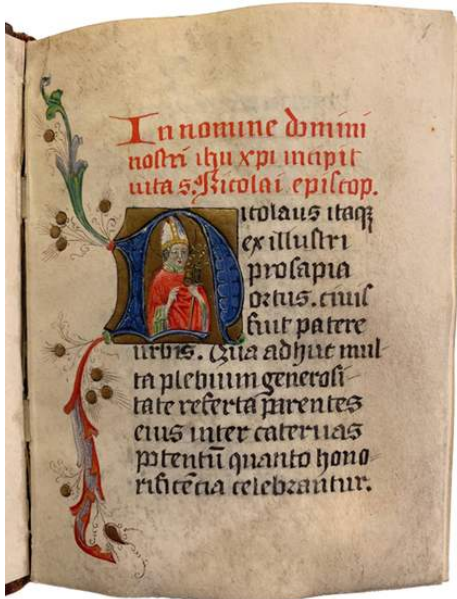 In nomine domini
nostri ihu xpi incipit
uita s. Nicolai episcop.
Nicolaus itaqꝫ
ex illustri
prosapia
ortus. ciuis
fuit patere
urbis. Qua adhuc mul-
ta plebium generosi-
tate referta parentes
eius inter cateruas
potentū quanto hono
rificēcia celebrantur.